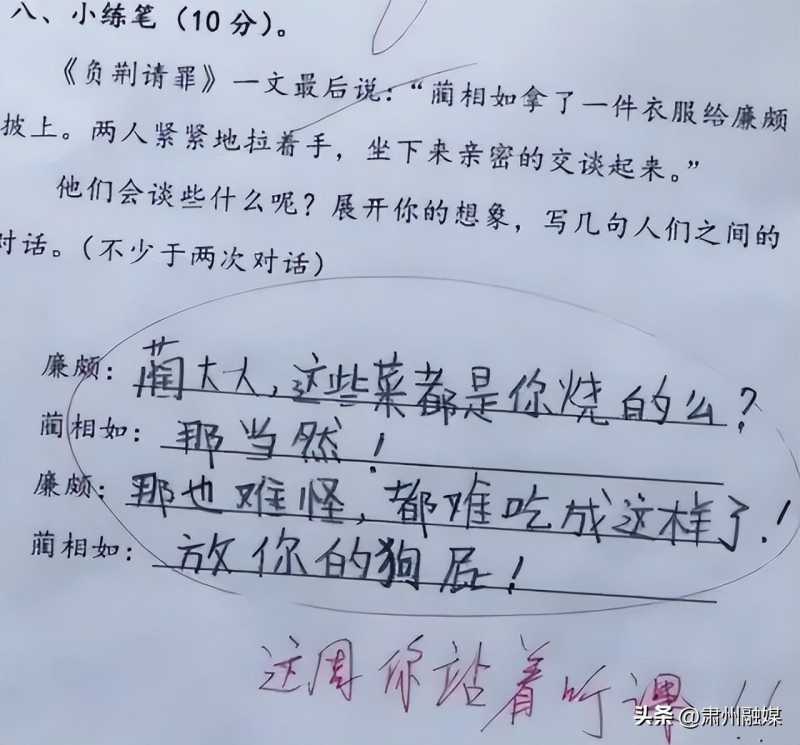 八、小练笔（10分）。
《负荆请罪》一文最后说：“蔺相如拿了一件衣服给廉颇
披上。两人紧紧地拉着手，坐下来亲密的交谈起来。”
他们会谈些什么呢？展开你的想象，写几句人们之间的
对话。（不少于两次对话）
廉颇：蔺大大，这些菜都是你烧的么？
蔺相如：那当然！
廉颇：那也难怪，都难吃成这样了！
蔺相如：放你的狗屁！
这周你站着听课！！
头条 @肃州融媒